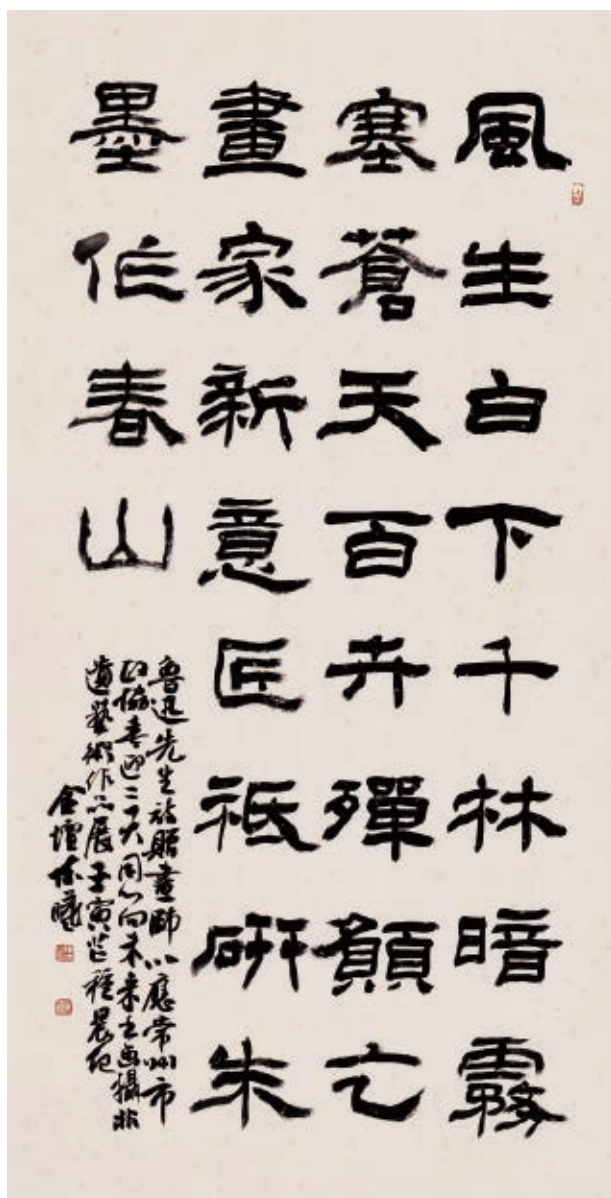 風生白下千林暗霧
塞蒼天百卉殫願乞
畫家新意匠祇研朱
墨作春山
魯迅先生詩贈畫師以應常州市
政協喜迎二十大同心向未来书画攝非
遺藝術作品展壬寅芒種晨起
金壇